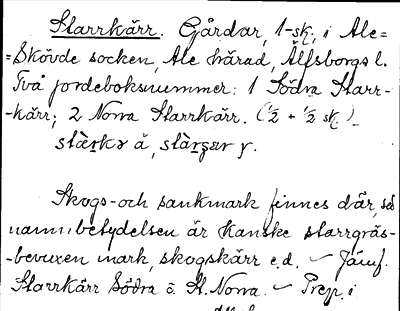 Starrkärr. Gårdar, 1 sk, i Ale=
=Skövde socken, Ale härad, Älfsborgs l.
Två jordeboksnummer: 1 Södra Starr-
-kärr; 2 Norra Starrkärr. (½ + ½ sk.)
Skogs- och sankmark finnes där, så
namnbetydelsen är kanske starrgräs-
-bevuxen mark, skogskärr e.d. – Jämf.
Starrkärr Södra o. St. Norra. – Prep. i